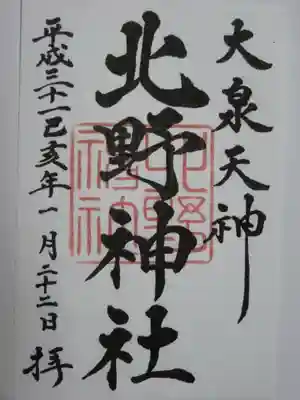 大泉天神
北野神社
平成三十一己亥年一月二十二日 拝
北野神社